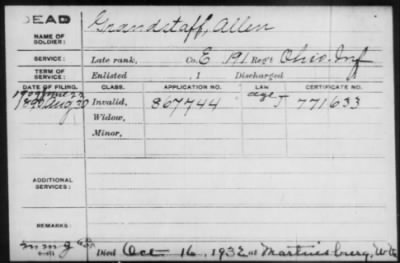 DEAD
NAME OF SOLDIER: Grandstaff, Allen
SERVICE: Late rank, Co. E 191 Reg't Ohio Inf
TERM OF SERVICE: Enlisted , 1 Discharged
DATE OF FILING. CLASS. APPLICATION NO. LAW. CERTIFICATE NO.
1890 Aug 30 Invalid, 867744 age J 771633
Widow,
Minor,
ADDITIONAL SERVICES:
REMARKS:
Died Oct 16, 1932 at Martinsburg,